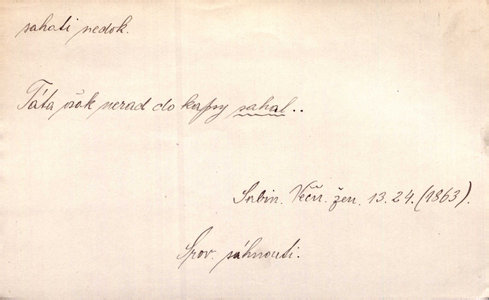 sahati nedok.
Táta však nerad do kapsy sahal..
Sabin. Věčn. žen. 13.24. (1863).
Srov. sáhnouti.